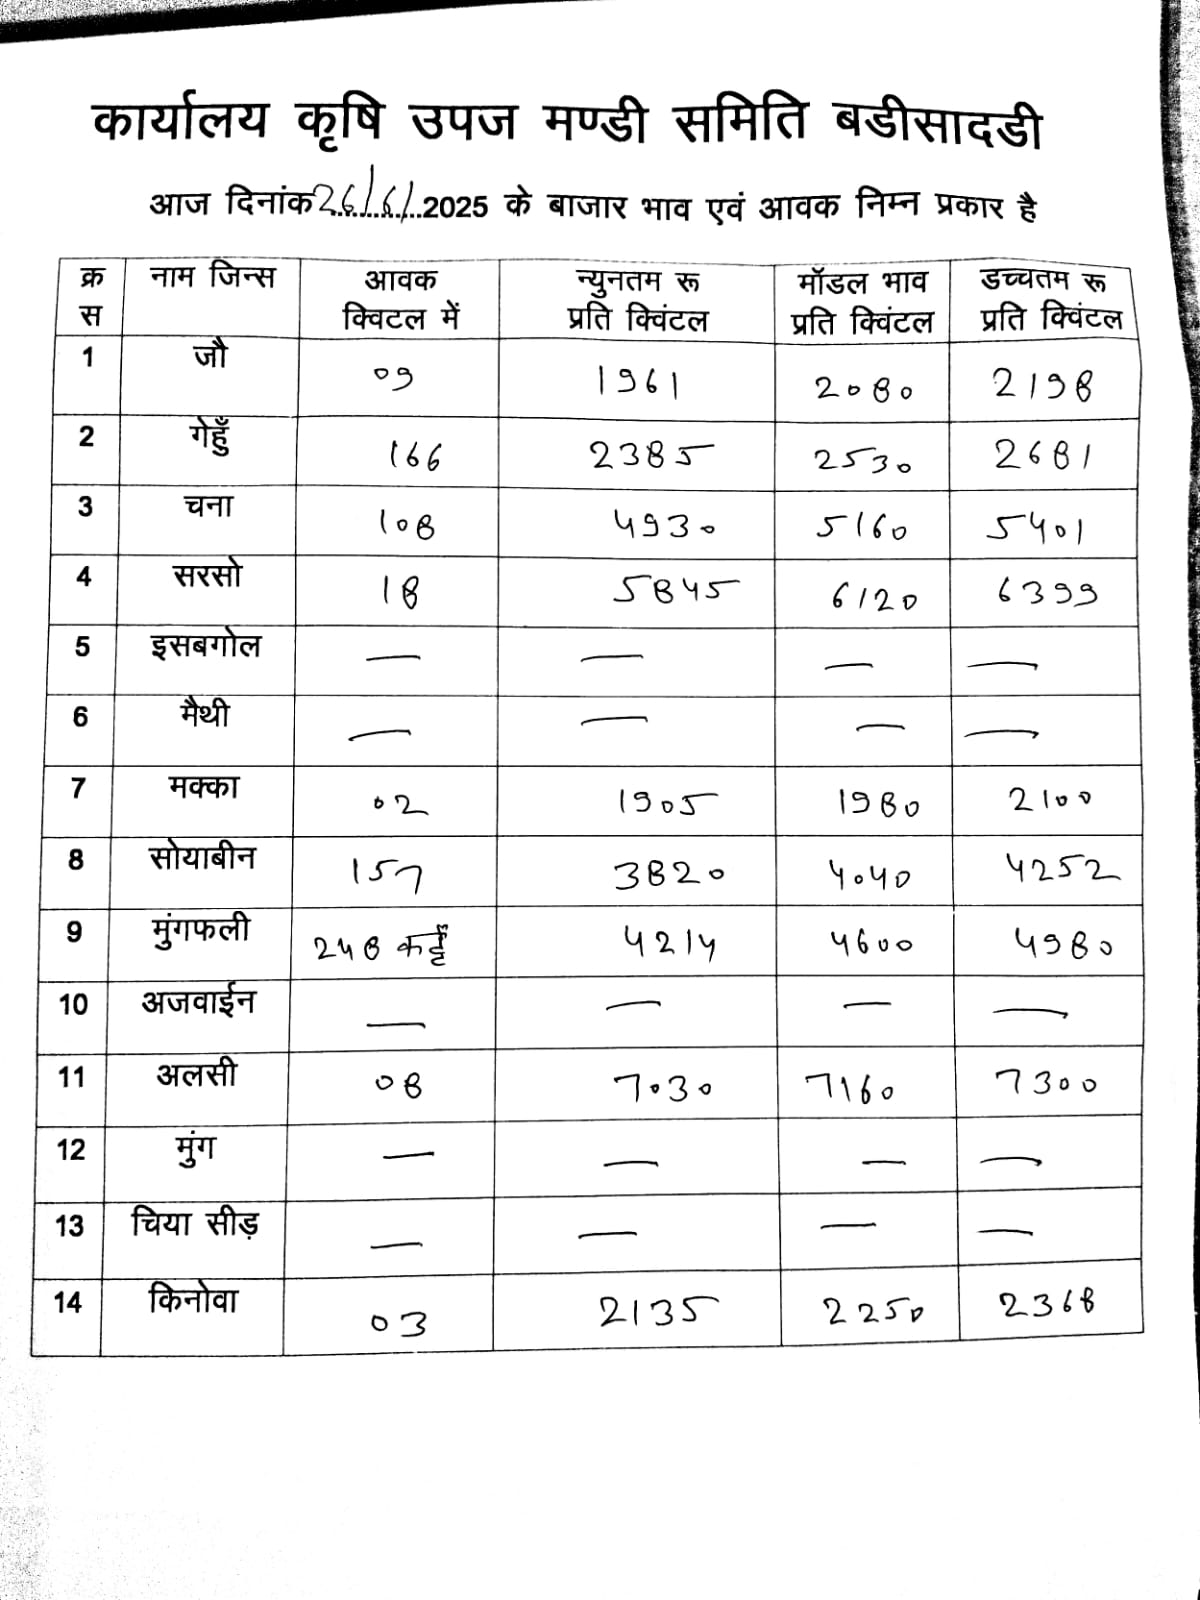 कार्यालय कृषि उपज मण्डी समिति बडीसादडी
आज दिनांक 26/6/2025 के बाजार भाव एवं आवक निम्न प्रकार है
क्र स नाम जिन्स आवक क्विटल में न्युनतम रू प्रति क्विंटल मॉडल भाव प्रति क्विंटल डच्चतम रू प्रति क्विंटल
1 जौ 09 1961 2080 2198
2 गेहुँ 166 2385 2530 2681
3 चना 108 4930 5160 5401
4 सरसो 18 5845 6120 6399
5 इसबगोल — — — —
6 मैथी — — — —
7 मक्का 02 1905 1980 2100
8 सोयाबीन 157 3820 4040 4252
9 मुंगफली 248 कट्टे 4214 4600 4980
10 अजवाईन — — — —
11 अलसी 08 7030 7160 7300
12 मुंग — — — —
13 चिया सीड़ — — — —
14 किनोवा 03 2135 2250 2368